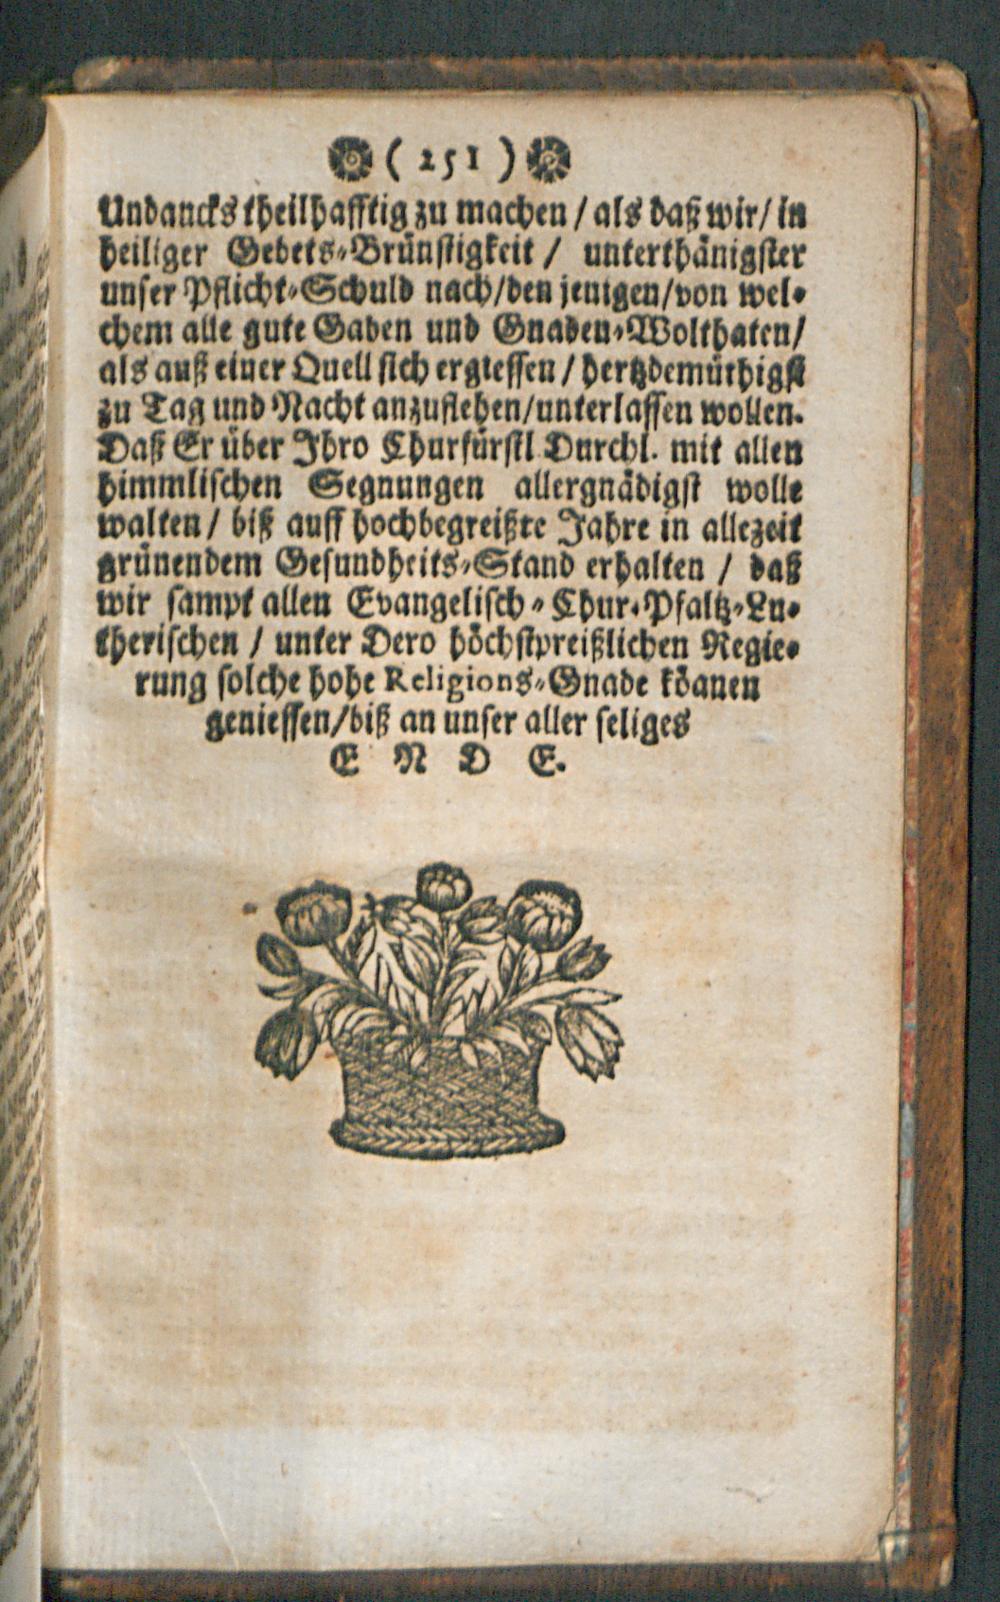 ( 251 )
Undancks theilhafftig zu machen / als daß wir / in
heiliger Gebets-Brünstigkeit / unterthänigster
unser Pflicht-Schuld nach / den jenigen / von wel-
chem alle gute Gaben und Gnaden-Wolthaten /
als auß einer Quell sich ergiessen / hertzdemüthigst
zu Tag und Nacht anzuflehen / unterlassen wollen.
Daß Er über Ihro Churfürstl Durchl. mit allen
himmlischen Segnungen allergnädigst wolle
walten / biß auff hochbegreißte Jahre in allezeit
grünendem Gesundheits-Stand erhalten / daß
wir sampt allen Evangelisch-Chur-Pfaltz-Lu-
therischen / unter Dero höchstpreißlichen Regie-
rung solche hohe Religions-Gnade köanen
geniessen / biß an unser aller seliges
E N D E.